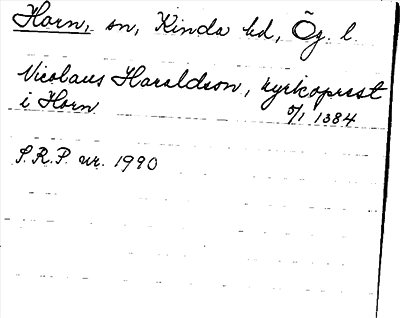 Horn, sn, Kinda hd, Ög. l.
Nicolaus Haraldson, kyrkoprest
i Horn 5/1 1384
S.R.P. nr. 1990